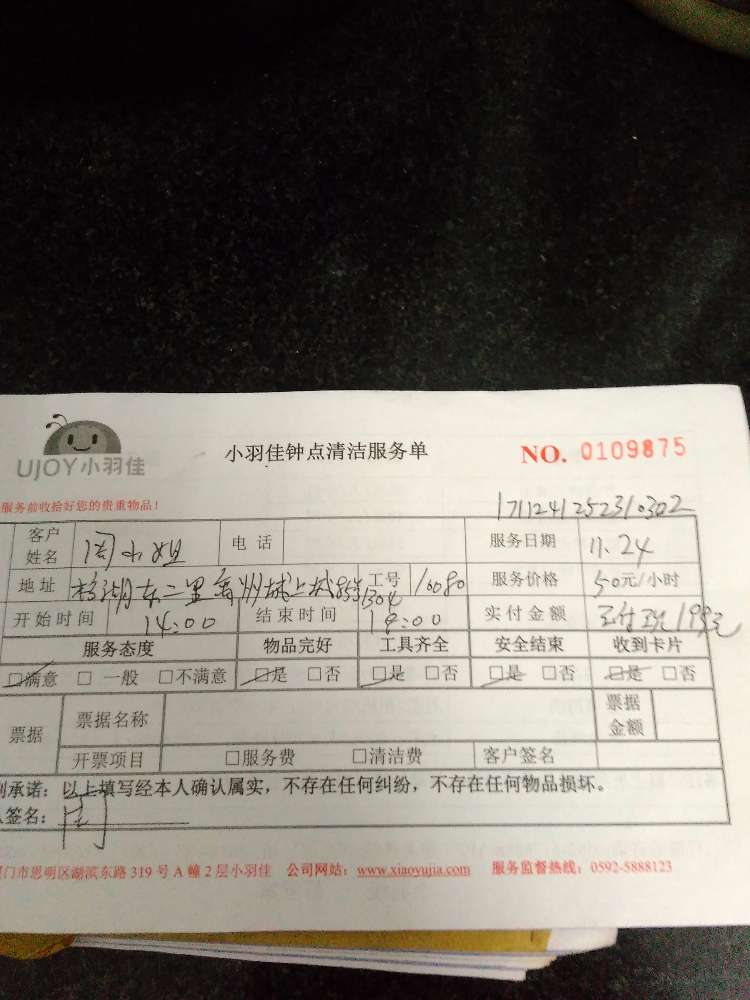 UJOY小羽佳
小羽佳钟点清洁服务单
NO. 0109875
服务前收拾好您的贵重物品！
1711241252310302
客户姓名 周小姐 电话 服务日期 11.24
地址 东二里禹州城上城 1304 工号 10080 服务价格 50元/小时
开始时间 14:00 结束时间 18:00 实付金额 199元
服务态度 物品完好 工具齐全 安全结束 收到卡片
□满意 □一般 □不满意 □是 □否 □是 □否 □是 □否 □是 □否
票据 票据名称 票据金额
开票项目 □服务费 □清洁费 客户签名
承诺：以上填写经本人确认属实，不存在任何纠纷，不存在任何物品损坏。
签名：周
门市思明区湖滨东路319号A幢2层小羽佳 公司网站：www.xiaoyujia.com 服务监督热线：0592-5888123